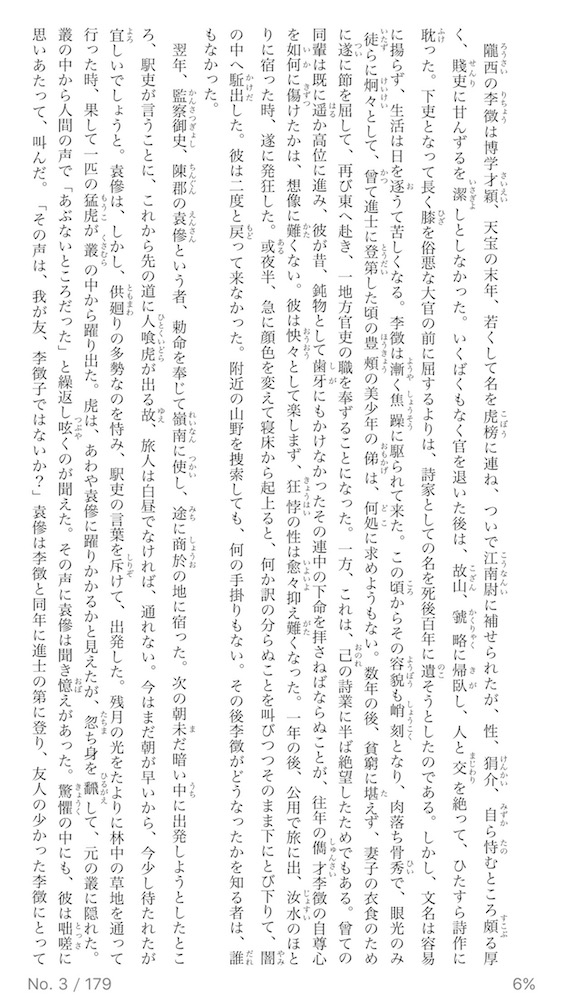 隴西の李徴は博学才穎、天宝の末年、若くして名を虎榜に連ね、ついで江南尉に補せられたが、性、狷介、自ら恃むところ頗る厚
く、賤吏に甘んずるを潔しとしなかった。いくばくもなく官を退いた後は、故山、虢略に帰臥し、人と交を絶って、ひたすら詩作に
耽った。下吏となって長く膝を俗悪な大官の前に屈するよりは、詩家としての名を死後百年に遺そうとしたのである。しかし、文名は容易
に揚らず、生活は日を逐うて苦しくなる。李徴は漸く焦躁に駆られて来た。この頃からその容貌も峭刻となり、肉落ち骨秀で、眼光のみ
徒らに炯々として、曾て進士に登第した頃の豊頬の美少年の俤は、何処に求めようもない。数年の後、貧窮に堪えず、妻子の衣食のため
に遂に節を屈して、再び東へ赴き、一地方官吏の職を奉ずることになった。一方、これは、己の詩業に半ば絶望したためでもある。曾ての
同輩は既に遥か高位に進み、彼が昔、鈍物として歯牙にもかけなかったその連中の下命を拝さねばならぬことが、往年の儁才李徴の自尊心
を如何に傷けたかは、想像に難くない。彼は怏々として楽しまず、狂悖の性は愈々抑え難くなった。一年の後、公用で旅に出、汝水のほと
りに宿った時、遂に発狂した。或夜半、急に顔色を変えて寝床から起上ると、何か訳の分らぬことを叫びつつそのまま下にとび下りて、闇
の中へ駈出した。彼は二度と戻って来なかった。附近の山野を捜索しても、何の手掛りもない。その後李徴がどうなったかを知る者は、誰
もなかった。
翌年、監察御史、陳郡の袁傪という者、勅命を奉じて嶺南に使し、途に商於の地に宿った。次の朝未だ暗い中に出発しようとしたとこ
ろ、駅吏が言うことに、これから先の道に人喰虎が出る故、旅人は白昼でなければ、通れない。今はまだ朝が早いから、今少し待たれたが
宜しいでしょうと。袁傪は、しかし、供廻りの多勢なのを恃み、駅吏の言葉を斥けて、出発した。残月の光をたよりに林中の草地を通って
行った時、果して一匹の猛虎が叢の中から躍り出た。虎は、あわや袁傪に躍りかかるかと見えたが、忽ち身を飜して、元の叢に隠れた。
叢の中から人間の声で「あぶないところだった」と繰返し呟くのが聞えた。その声に袁傪は聞き憶えがあった。驚懼の中にも、彼は咄嗟に
思いあたって、叫んだ。「その声は、我が友、李徴子ではないか？」袁傪は李徴と同年に進士の第に登り、友人の少かった李徴にとって
No. 3 / 179
6%